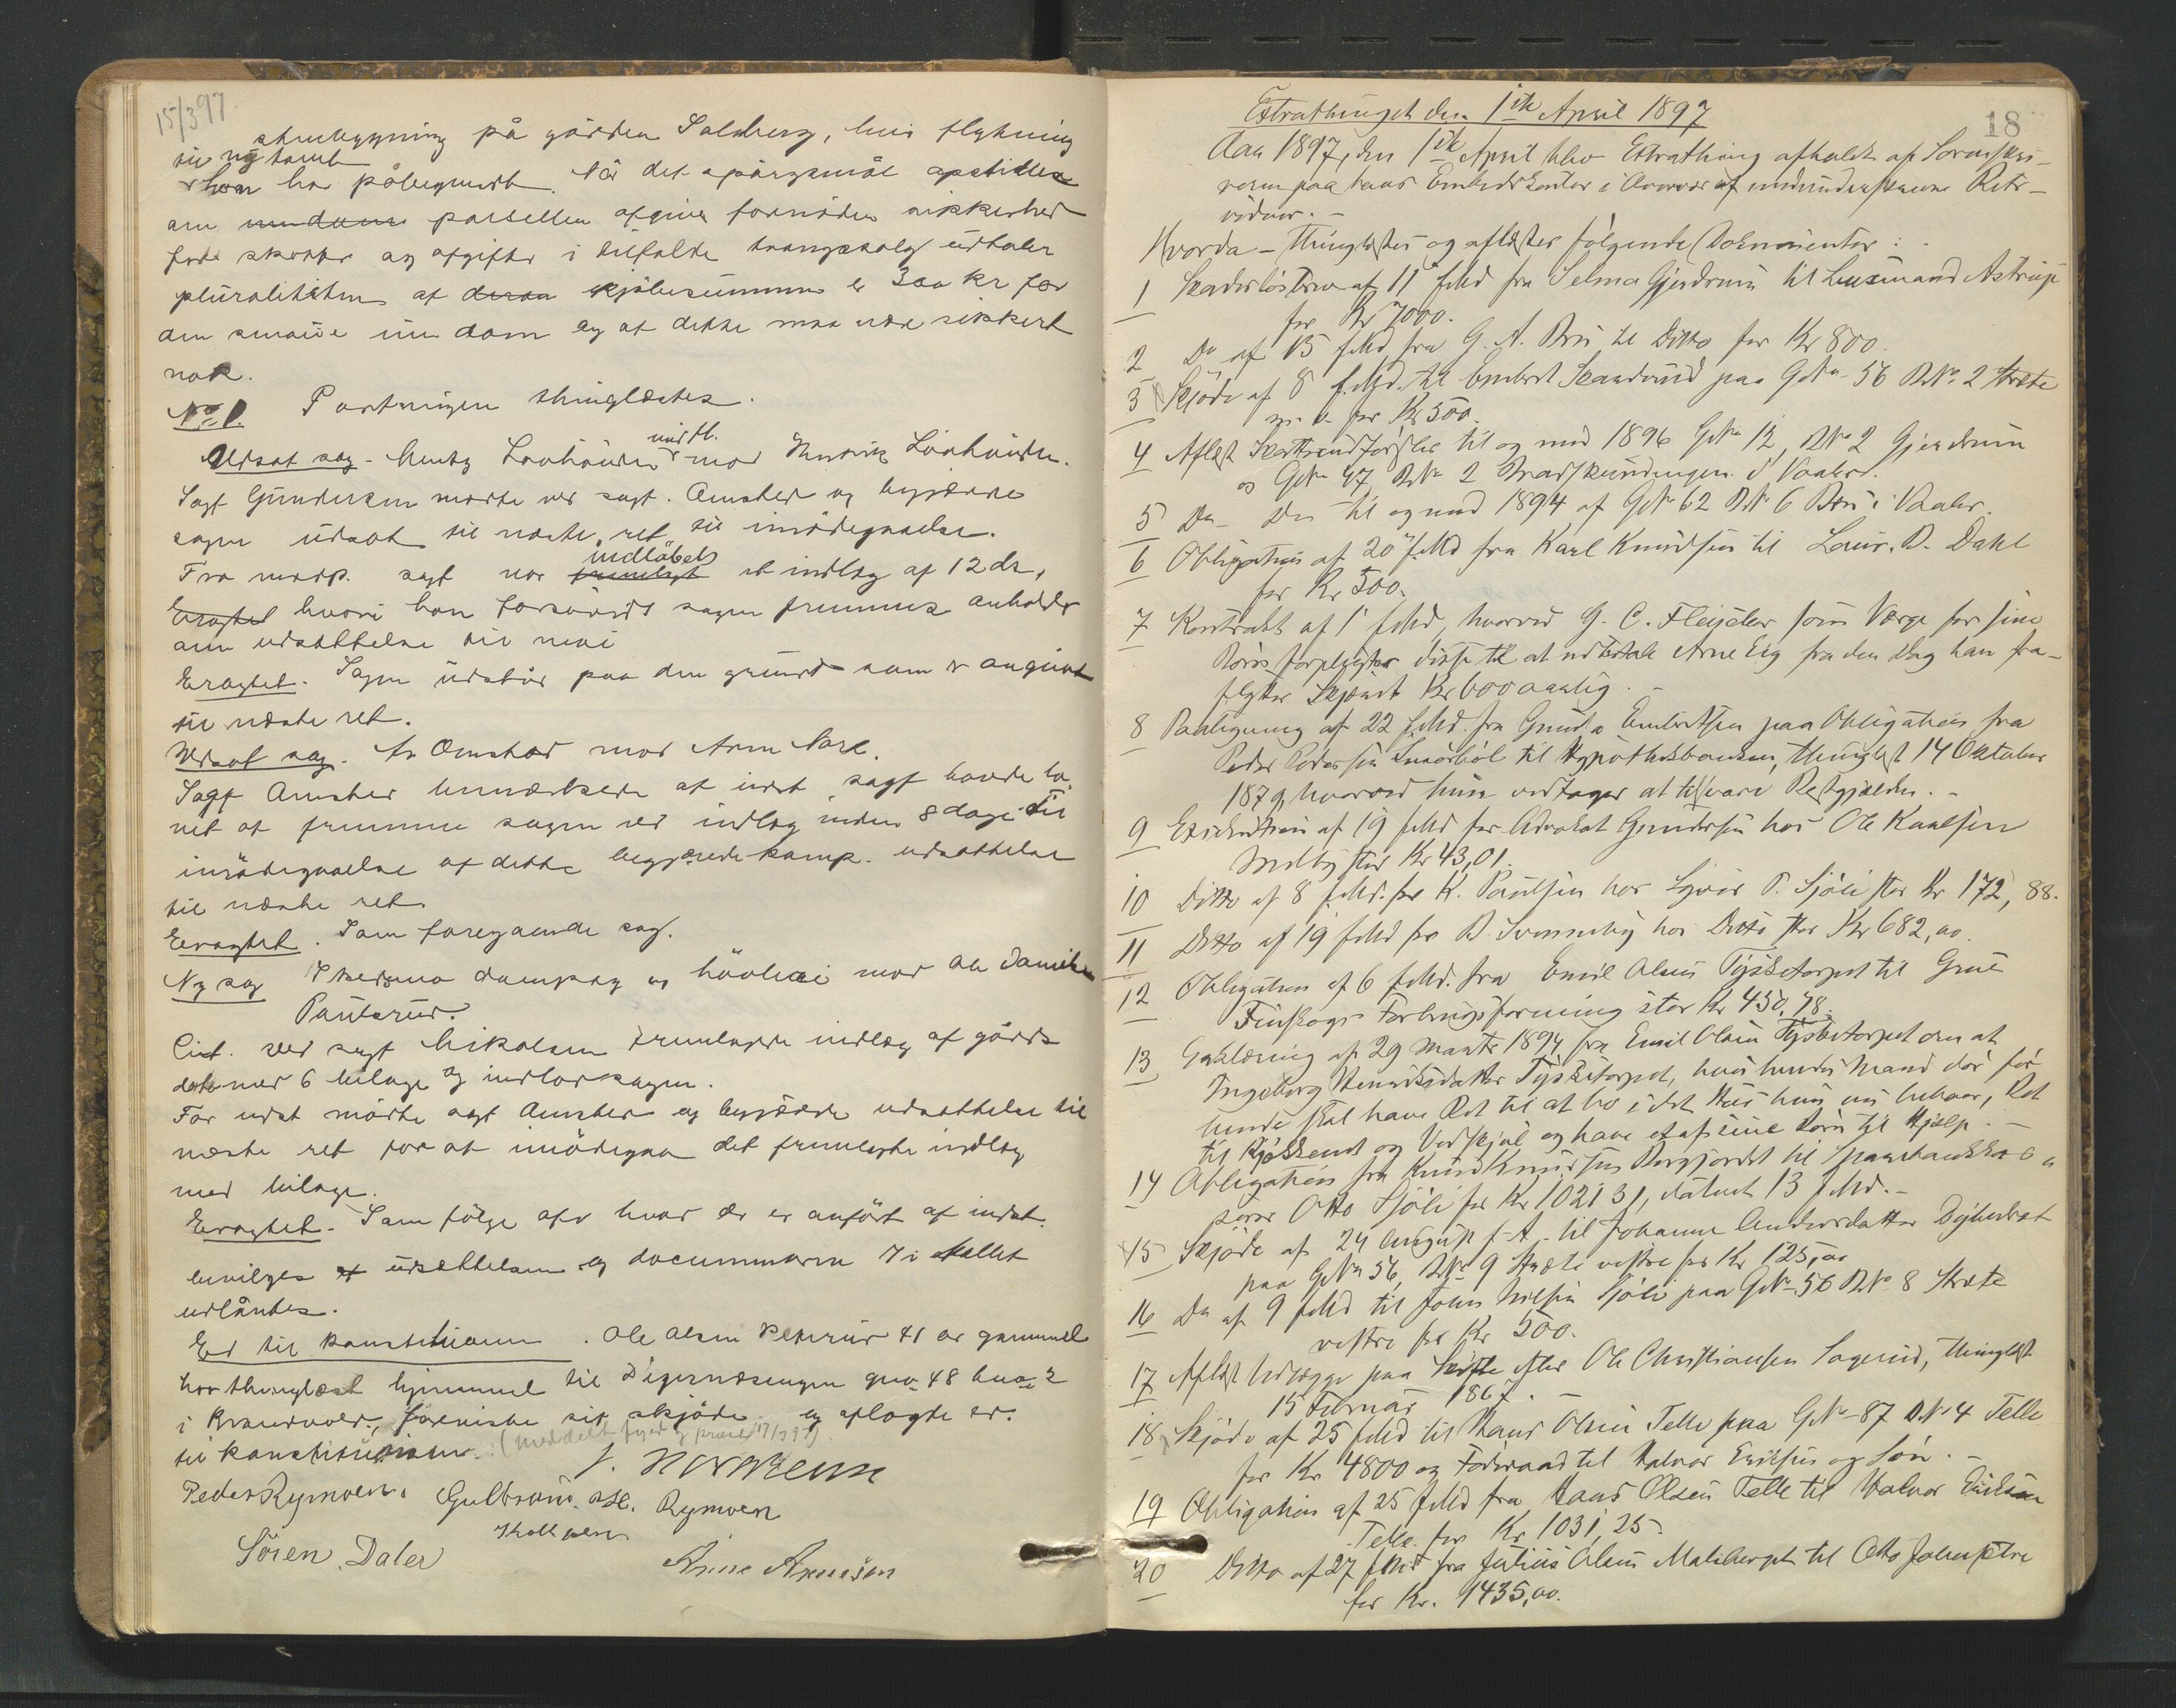 15/3 97
på gården Solberg, hvis flytning
til ny tomt
han har påbegyndt. Når det spörgsmål opstilles
om parsellen afgiver fornöden sikkerhed
for skatter og afgifter i tilfælde tvangssalg udtaler
pluraliteten at kjöbesummen er 300 kr for
den smule jord og at dette maa være sikkert
nok.
No 1. Forretningen thinglæstes.
Udsat sag - mod
Sagf Gundersen mödte ved sagf. Amsher og begjærede
sagen udsat til næste ret til imödegaaelse.
Fra modp. sagf var indlöbet et indlæg af 12 ds,
hvori han forsaavidt sagen fremmes anholder
om udsættelse til mai
Eragtet. Sagen udstår paa den grund som er angivet
til næste ret.
Udsat sag. mod
Sagf Amsher bemærkede at indst sagf havde lo-
vet at fremme sagen ved indlæg inden 8 dage. Til
imödegaaelse af dette begjærede komp. udsættelse
til næste ret.
Eragtet. Som foregaaende sag.
Ny sag dampsag og hövleri mod Ole Danielsen
Pauterud.
Cit. ved sagf Mikalsen fremlagde indlæg af gårds
dato med 6 bilage og indlod sagen.
For indst mödte sagf Amsher og begjærede udsættelse til
næste ret for at imödegaa det fremlagte indlæg
med bilage.
Eragtet. Som fölge af hvad der er anfört af indst.
bevilges udsættelsen og documenterne 7 i tallet
udlåntes.
Ed til konstitutionen. Ole Olsen 41 år gammel
har thinglæst hjemmel til Digernæsengen gno 48 bno 2
i Brandvold, foreviste sit skjöde og aflagde ed
til konstitutionen. (meddelt 17/3 97).
Peder Rymoen. Gulbrand Rymoen
Sören Daler Arne Arnesen
18
Extrathinget den 1ste April 1897
Aar 1897, den 1ste April blev Extrathing afholdt af Sorenskri-
veren paa hans Embedskontor i Overvær af undertegnede Rets-
vidner. -
Hvorda - Thinglæstes og aflæstes følgende Dokumenter: -
1 Skadesløsbrev af 11 f.Md fra Selma Gjerdrum til Lensmand Astrup
for Kr 7000.
2 Do af 15 f.Md fra G. A. Bru til Ditto for Kr 800.
3 Skjøde af 8 f.Md. til Embret Skandrud paa GNo 56 BNo 2 Stræte
m. v. for Kr 500.
4 Aflæst til og med 1896 GNo 12, BNo 2 Gjerdrum
og GNo 47, BNo 2 i Vaaler.
5 Do - Do til og med 1894 af GNo 62 BNo 6 Bru i Vaaler.
6 Obligation af 20 f.Md fra Karl Knudsen til Laur. D. Dahl
for Kr 500.
7 Kontrakt af 1 f.Md, hvorved G. C. Fleischer som Værge for sine
Børn forpligter disse til at udbetale Arne Eig fra den Dag han fra-
flytter Kr 600 aarlig. -
8 Paategning af 22 f.Md. fra Embretsen paa Obligation fra
Peder Pedersen til Hypothekbanken, thinglæst 14 Oktober
1879, hvorved hun vedtager at tilsvare Restgjælden. -
9 Exekution af 19 f.Md for Advokat Gundersen hos Ole Karlsen
Melby stor Kr 43,01.
10 Ditto af 8 f.Md. for K. Paulsen hos Syver P. Sjøli stor Kr 172,88.
11 Ditto af 19 f.Md for B. Svenneby hos Ditto stor Kr 682,00.
12 Obligation af 6 f.Md. fra Emil Olsen Tysketorpet til Grue
Finskogs Forbrugsforening stor Kr 450,78.
13 Erklæring af 29 Marts 1894 fra Emil Olsen Tysketorpet om at
Ingeborg Henriksdatter Tysketorpet, hvis hendes Mand dør før
hende skal have Ret til at bo i det Hus hun nu bebor, Ret
til og Vedskjul og have et af sine Børn til Hjælp. -
14 Obligation fra Knud Knudsen Bergjordet til
serer Otto Sjöli for Kr 1021 31, dateret 13 f.Md. -
15 Skjøde af 24 August f. A. til Johanne Andersdatter
paa GNo 56, BNo 9 Stræte vestre for Kr 125,00
16 Do af 9 f.Md til Johan Nilsen Sjöli paa GNo 56 BNo 8 Stræte
vestre for Kr 500.
17 Aflæst Udlægget paa Skifte efter Ole Christiansen Sagerud, thinglæst
15 Februar 1867. -
18 Skjøde af 25 f.Md til Hans Olsen Telle paa GNo 87 BNo 4 Telle
for Kr 4800 og Føderaad til Halvor Eriksen og Søn. -
19 Obligation af 25 f.Md fra Hans Olsen Telle til Halvor Eriksen
Telle for Kr 1031,25.
20 Ditto af 27 f.Md fra Julius Olsen Malibergst til Otto
for Kr. 1435,00.